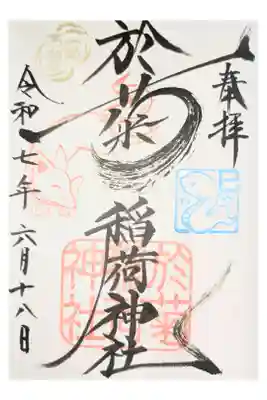 奉拝
於菊
稲荷神社
於菊
神社
令和七年六月十八日